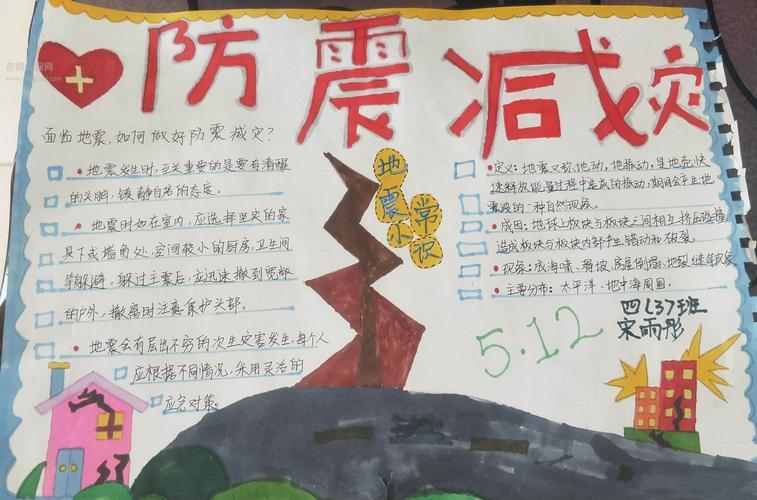 防震减灾
面临地震,如何做好防震减灾?
地震发生时,至关重要的是要有清醒
的头脑,镇静自若的态度。
地震时如在室内,应选择坚实的家
具下或墙角处,空间较小的厨房,卫生间
等躲避。躲过主震后,应迅速撤到宽敞
的户外,撤离时注意保护头部。
地震会有层出不穷的次生灾害发生,每个人
应根据不同情况,采用灵活的
应急对策。
地震小常识
定义:地震又称地动,地振动,是地壳快
速释放能量过程中造成的振动,期间会产生地
震波的一种自然现象。
成因:地球上板块与板块之间相互挤压碰撞
造成板块与板块内部产生错动和破裂。
现象:成海啸、滑坡、房屋倒塌、地裂缝等现象
主要分布:太平洋、地中海周围。
5.12
四(3)班
宋雨彤